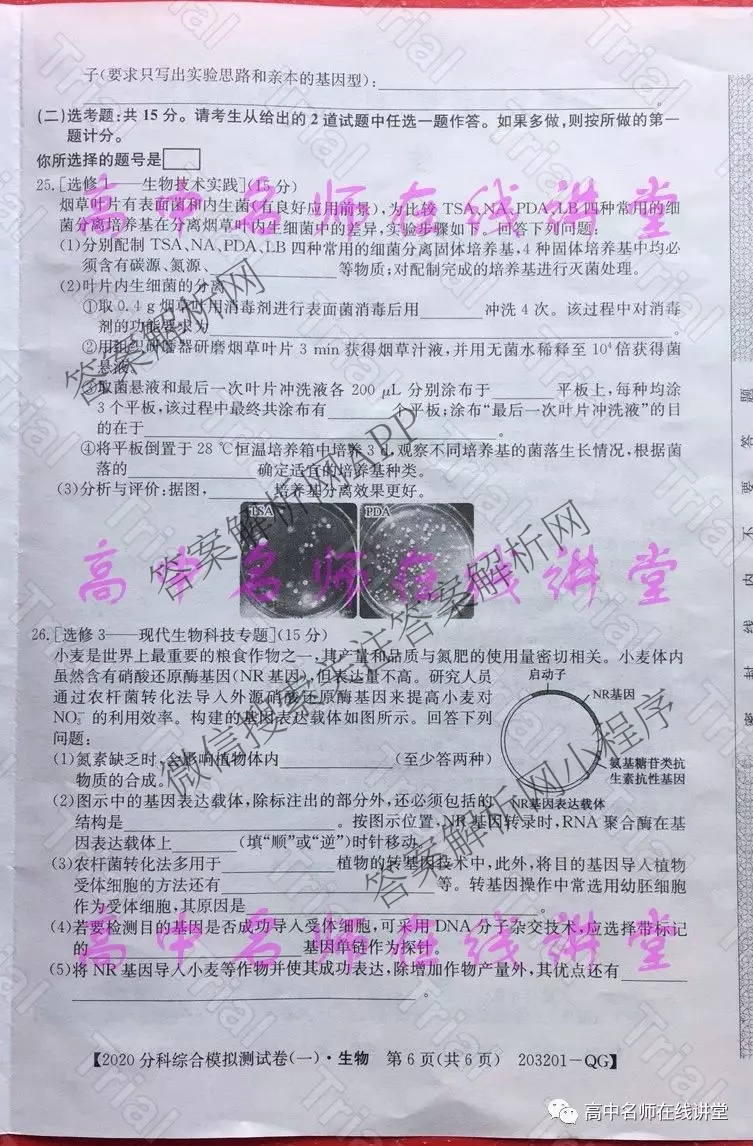 子(要求只写出实验思路和亲本的基因型):
。
(二)选考题:共 15 分。请考生从给出的 2 道试题中任选一题作答。如果多做,则按所做的第一
题计分。
你所选择的题号是
25.[选修 1——生物技术实践](15 分)
烟草叶片有表面菌和内生菌(有良好应用前景),为比较 TSA、NA、PDA、LB 四种常用的细
菌分离培养基在分离烟草叶内生细菌中的差异,实验步骤如下。回答下列问题:
(1)分别配制 TSA、NA、PDA、LB 四种常用的细菌分离固体培养基,4 种固体培养基中均必
须含有碳源、氮源、 等物质;对配制完成的培养基进行灭菌处理。
(2)叶片内生细菌的分离
①取 0.4 g 烟草叶用消毒剂进行表面菌消毒后用 冲洗 4 次。该过程中对消毒
剂的功能要求为 。
②用组织研磨器研磨烟草叶片 3 min 获得烟草汁液,并用无菌水稀释至 10⁴ 倍获得菌
悬液。
③取菌悬液和最后一次叶片冲洗液各 200 μL 分别涂布于 平板上,每种均涂
3 个平板,该过程中最终共涂布有 个平板;涂布“最后一次叶片冲洗液”的目
的在于 。
④将平板倒置于 28 ℃恒温培养箱中培养 3 d,观察不同培养基的菌落生长情况,根据菌
落的 确定适宜的培养基种类。
(3)分析与评价:据图, 培养基分离效果更好。
TSA
PDA
26.[选修 3——现代生物科技专题](15 分)
小麦是世界上最重要的粮食作物之一,其产量和品质与氮肥的使用量密切相关。小麦体内
虽然含有硝酸还原酶基因(NR 基因),但表达量不高。研究人员
通过农杆菌转化法导入外源硝酸还原酶基因来提高小麦对
NO₃⁻ 的利用效率。构建的基因表达载体如图所示。回答下列
问题:
启动子
NR基因
氨基糖苷类抗
生素抗性基因
NR基因表达载体
(1)氮素缺乏时,会影响植物体内 (至少答两种)
物质的合成。
(2)图示中的基因表达载体,除标注出的部分外,还必须包括的
结构是 。按图示位置,NR 基因转录时,RNA 聚合酶在基
因表达载体上 (填“顺”或“逆”)时针移动。
(3)农杆菌转化法多用于 植物的转基因技术中,此外,将目的基因导入植物
受体细胞的方法还有 等。转基因操作中常选用幼胚细胞
作为受体细胞,其原因是 。
(4)若要检测目的基因是否成功导入受体细胞,可采用 DNA 分子杂交技术,应选择带标记
的 基因单链作为探针。
(5)将 NR 基因导入小麦等作物并使其成功表达,除增加作物产量外,其优点还有
。
【2020 分科综合模拟测试卷(一)·生物 第 6 页(共 6 页) 203201-QG】
高中名师在线讲堂
高中名师在线讲堂
高中名师在线讲堂
答案解析网
答案解析网APP
微信搜索关注答案解析网
答案解析网小程序
Trial
题
答
要
不
内
线
封
密
高中名师在线讲堂